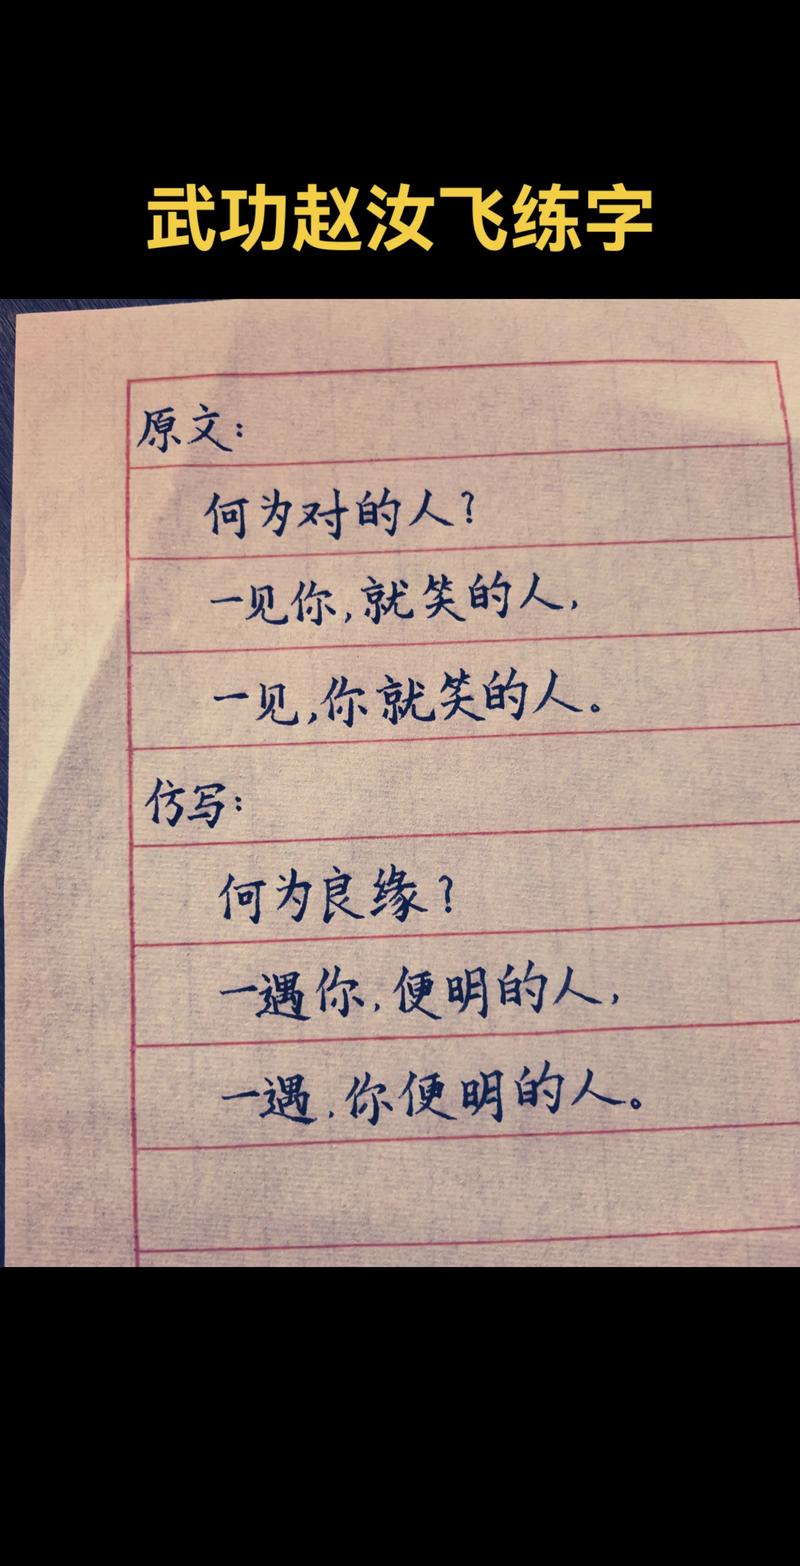 武功赵汝飞练字
原文：
何为对的人？
一见你，就笑的人，
一见，你就笑的人。
仿写：
何为良缘？
一遇你，便明的人，
一遇，你便明的人。